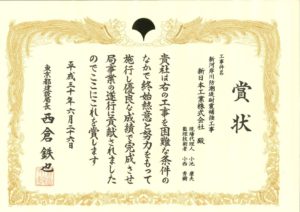 賞状
工事件名
新河岸川防潮堤耐震補強工事
新日本工業株式会社 殿
現場代理人 小池 康夫
監理技術者 小西 秀樹
貴社は右の工事を困難な条件の
なかで終始熱意と努力をもって
施行し優良な成績で完成させ
局事業の進行に貢献されました
のでここにこれを賞します
平成三十年六月二十六日
東京都建設局長 西倉 鉄也